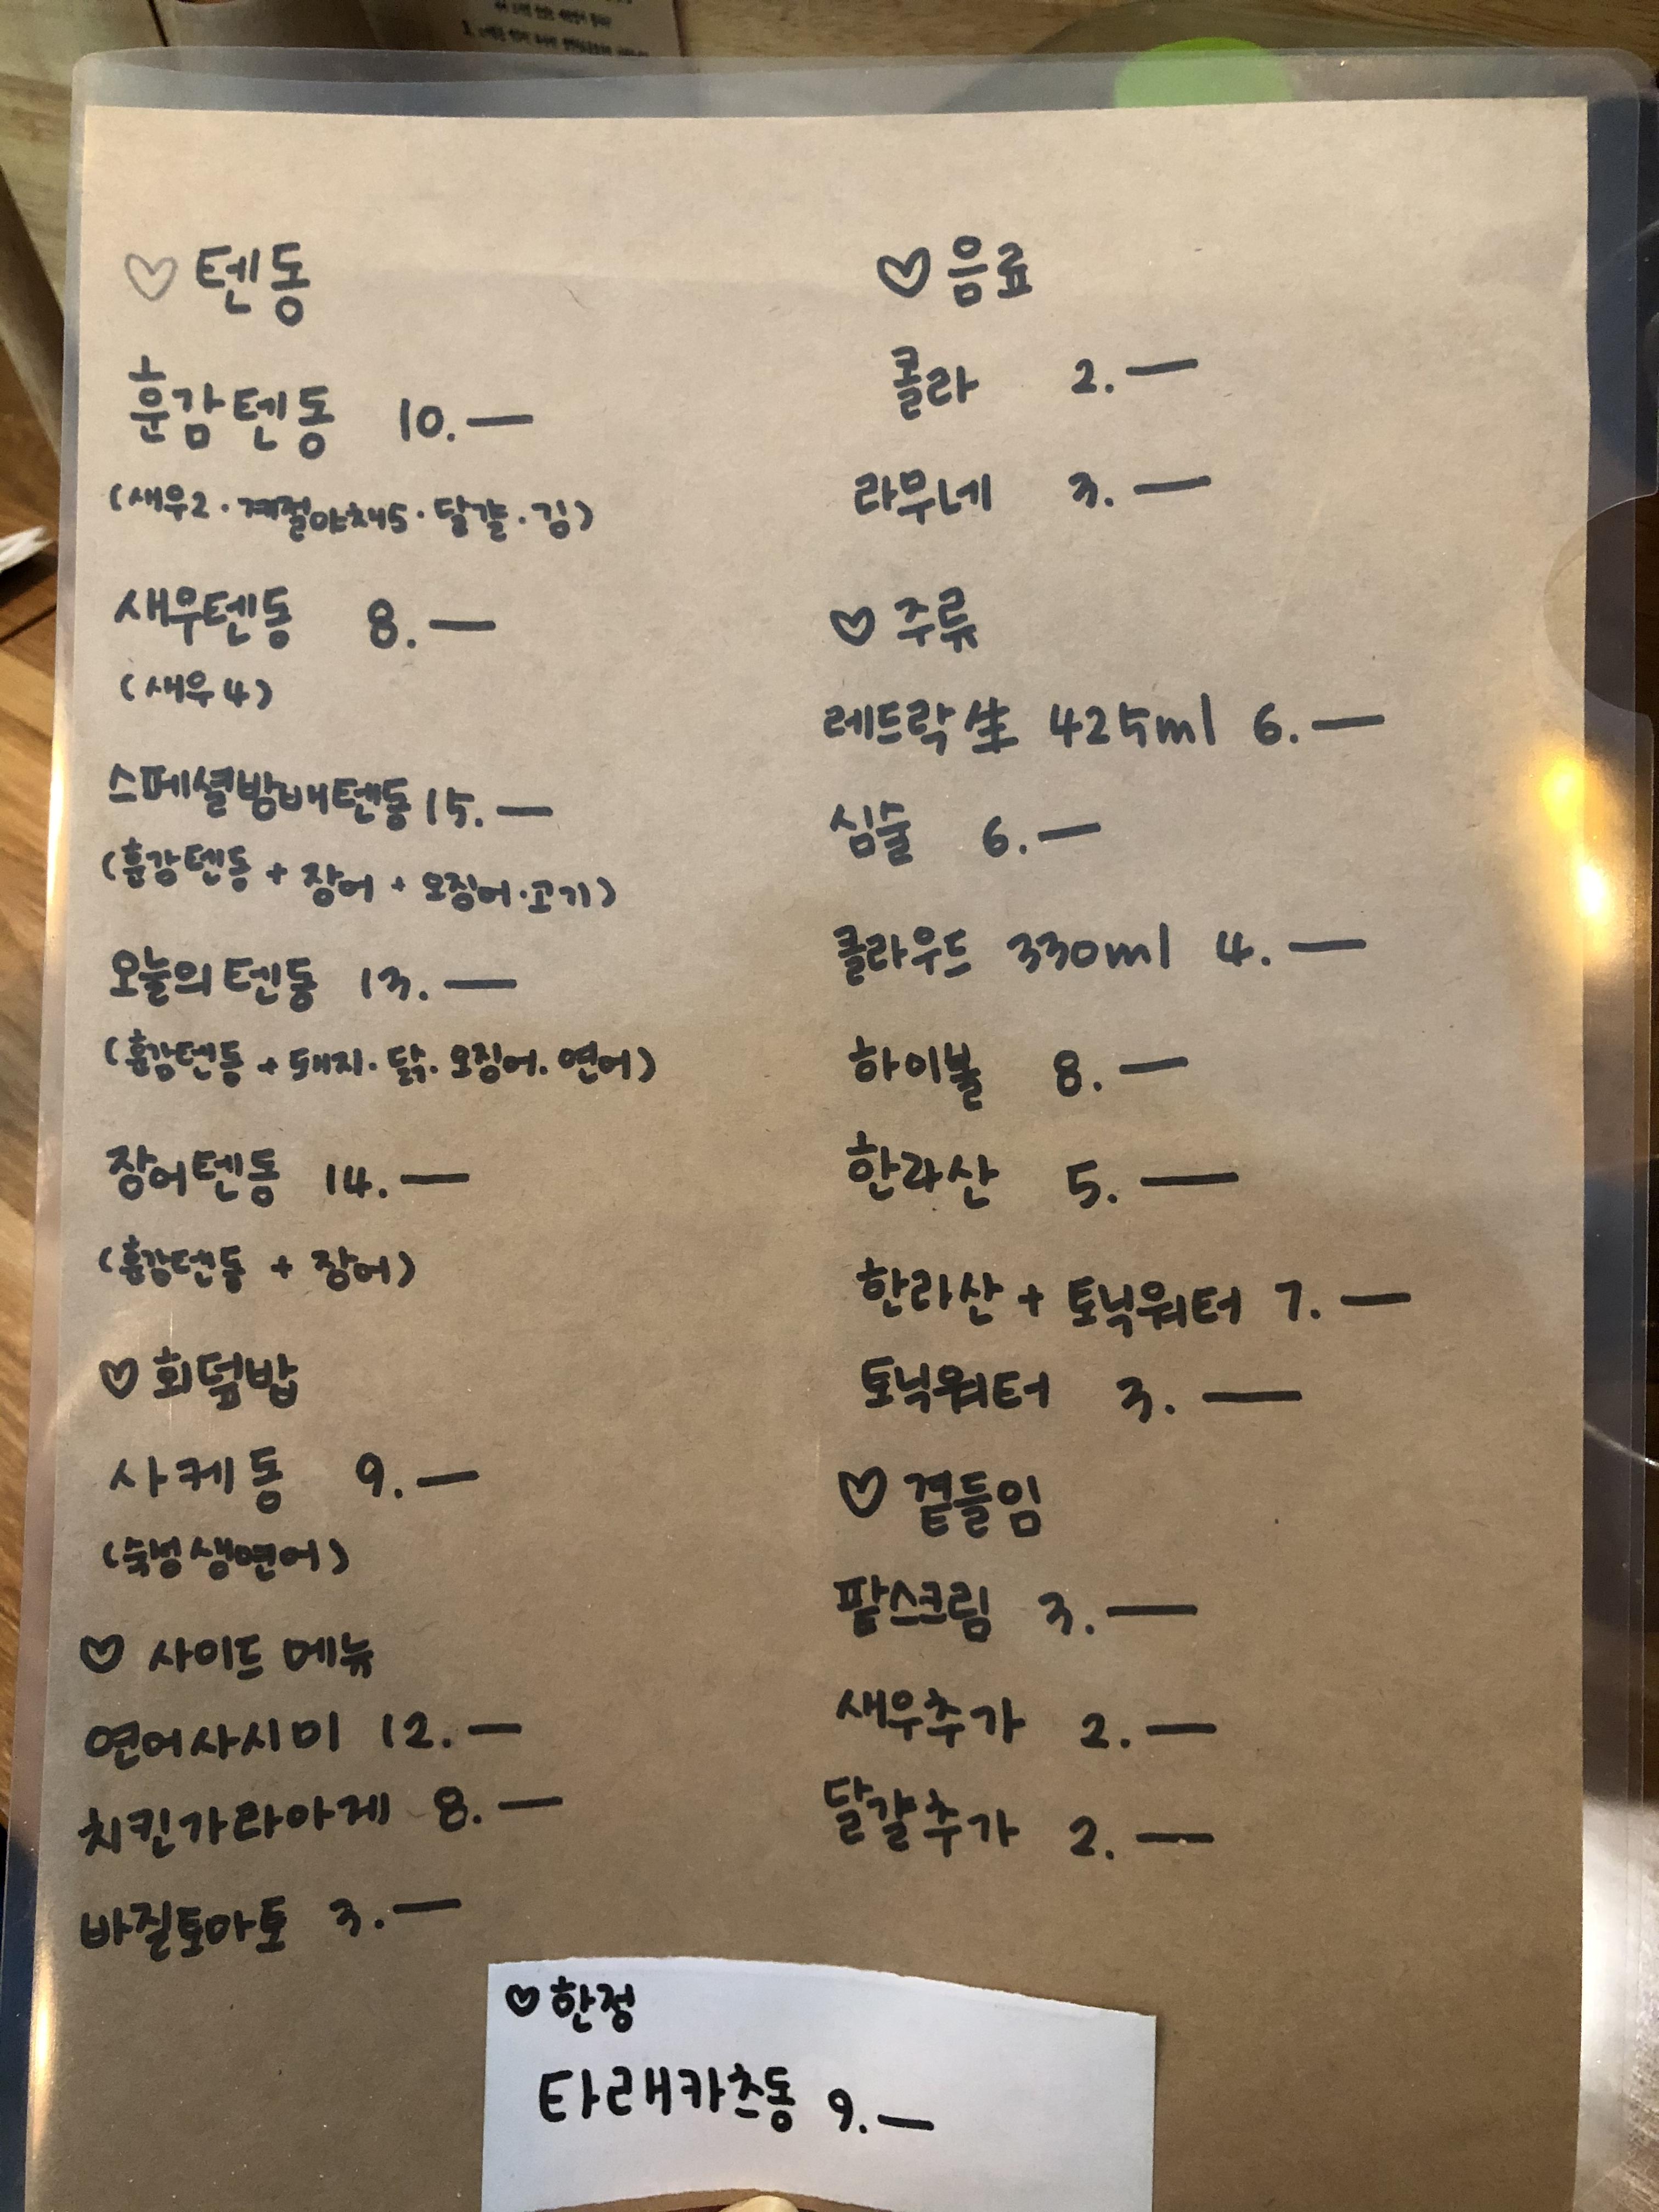 ♡ 텐동
훈감텐동 10.—
(새우2·계절야채5·달걀·김)
새우텐동 8.—
(새우4)
스페셜방배텐동 15.—
(훈감텐동 + 장어 + 오징어·고기)
오늘의텐동 13.—
(훈감텐동 + 돼지·닭·오징어·연어)
장어텐동 14.—
(훈감텐동 + 장어)
♡ 회덮밥
사케동 9.—
(숙성생연어)
♡ 사이드 메뉴
연어사시미 12.—
치킨가라아게 8.—
바질토마토 3.—
♡ 음료
콜라 2.—
라무네 3.—
♡ 주류
레드락生 425ml 6.—
심술 6.—
클라우드 330ml 4.—
하이볼 8.—
한라산 5.—
한라산 + 토닉워터 7.—
토닉워터 3.—
♡ 곁들임
팥스크림 3.—
새우추가 2.—
달걀추가 2.—
♡ 한정
타래카츠동 9.—